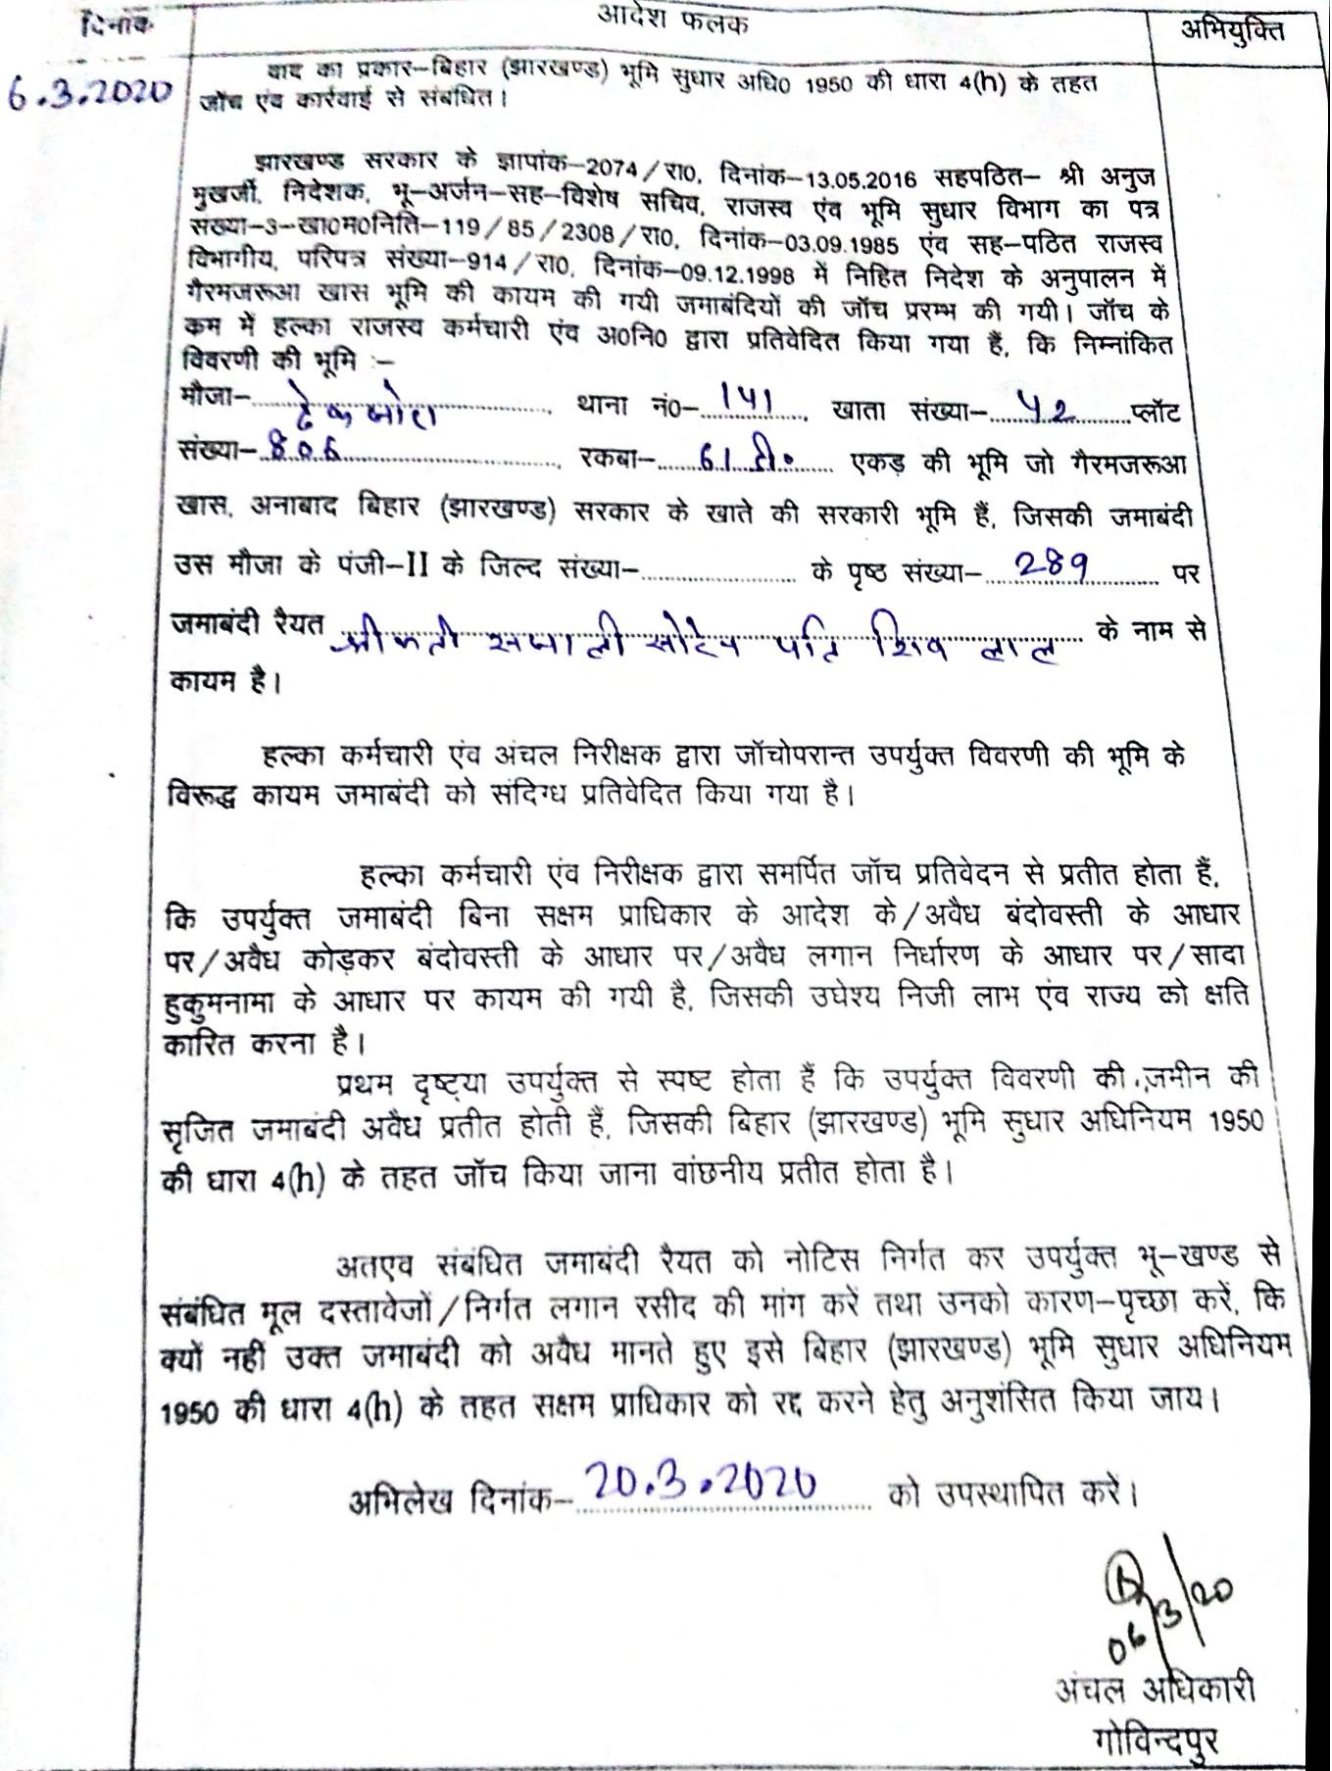 दिनांक आदेश फलक अभियुक्ति
6.3.2020 वाद का प्रकार–बिहार (झारखण्ड) भूमि सुधार अधि0 1950 की धारा 4(h) के तहत
जॉच एंव कार्रवाई से संबंधित।
झारखण्ड सरकार के ज्ञापांक–2074/रा0, दिनांक–13.05.2016 सहपठित– श्री अनुज
मुखर्जी, निदेशक, भू–अर्जन–सह–विशेष सचिव, राजस्व एंव भूमि सुधार विभाग का पत्र
संख्या–3–खा0म0निति–119/85/2308/रा0, दिनांक–03.09.1985 एंव सह–पठित राजस्व
विभागीय, परिपत्र संख्या–914/रा0, दिनांक–09.12.1998 में निहित निदेश के अनुपालन में
गैरमजरूआ खास भूमि की कायम की गयी जमाबंदियों की जॉच प्ररम्भ की गयी। जॉच के
कम में हल्का राजस्व कर्मचारी एंव अ0नि0 द्वारा प्रतिवेदित किया गया हैं, कि निम्नांकित
विवरणी की भूमि :–
मौजा–.......... थाना नं0–141, खाता संख्या–42 प्लॉट
संख्या–806, रकबा–61 डी० एकड़ की भूमि जो गैरमजरूआ
खास, अनाबाद बिहार (झारखण्ड) सरकार के खाते की सरकारी भूमि हैं, जिसकी जमाबंदी
उस मौजा के पंजी–II के जिल्द संख्या–.......... के पृष्ठ संख्या–289 पर
जमाबंदी रैयत श्रीमती पति शिव लाल के नाम से
कायम है।
हल्का कर्मचारी एंव अंचल निरीक्षक द्वारा जॉचोपरान्त उपर्युक्त विवरणी की भूमि के
विरूद्ध कायम जमाबंदी को संदिग्ध प्रतिवेदित किया गया है।
हल्का कर्मचारी एंव निरीक्षक द्वारा समर्पित जॉच प्रतिवेदन से प्रतीत होता हैं,
कि उपर्युक्त जमाबंदी बिना सक्षम प्राधिकार के आदेश के/अवैध बंदोवस्ती के आधार
पर/अवैध कोड़कर बंदोवस्ती के आधार पर/अवैध लगान निर्धारण के आधार पर/सादा
हुकुमनामा के आधार पर कायम की गयी है, जिसकी उघेश्य निजी लाभ एंव राज्य को क्षति
कारित करना है।
प्रथम दृष्ट्या उपर्युक्त से स्पष्ट होता हैं कि उपर्युक्त विवरणी की जमीन की
सृजित जमाबंदी अवैध प्रतीत होती हैं, जिसकी बिहार (झारखण्ड) भूमि सुधार अधिनियम 1950
की धारा 4(h) के तहत जॉच किया जाना वांछनीय प्रतीत होता है।
अतएव संबंधित जमाबंदी रैयत को नोटिस निर्गत कर उपर्युक्त भू–खण्ड से
संबंधित मूल दस्तावेजों/निर्गत लगान रसीद की मांग करें तथा उनको कारण–पृच्छा करें, कि
क्यों नहीं उक्त जमाबंदी को अवैध मानते हुए इसे बिहार (झारखण्ड) भूमि सुधार अधिनियम
1950 की धारा 4(h) के तहत सक्षम प्राधिकार को रद्द करने हेतु अनुशंसित किया जाय।
अभिलेख दिनांक–20.3.2020 को उपस्थापित करें।
06/3/20
अंचल अधिकारी
गोविन्दपुर